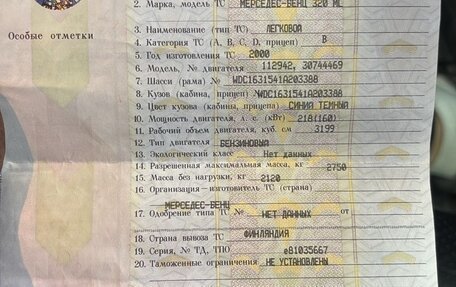 2. Марка, модель ТС МЕРСЕДЕС-БЕНЦ 320 ML
Особые отметки
3. Наименование (тип ТС) ЛЕГКОВОЙ
4. Категория ТС (А, В, С, D, прицеп) B
5. Год изготовления ТС 2000
6. Модель, № двигателя 112942, 30744469
7. Шасси (рама) № WDC1631541A203388
8. Кузов (кабина, прицеп) № WDC1631541A203388
9. Цвет кузова (кабины, прицепа) СИНИЙ ТЕМНЫЙ
10. Мощность двигателя, л. с. (кВт) 218(160)
11. Рабочий объем двигателя, куб. см 3199
12. Тип двигателя БЕНЗИНОВЫЙ
13. Экологический класс Нет данных
14. Разрешенная максимальная масса, кг 2750
15. Масса без нагрузки, кг 2120
16. Организация—изготовитель ТС (страна)
МЕРСЕДЕС-БЕНЦ
17. Одобрение типа ТС № НЕТ ДАННЫХ от
18. Страна вывоза ТС ФИНЛЯНДИЯ
19. Серия, № ТД, ТПО e81035667
20. Таможенные ограничения НЕ УСТАНОВЛЕНЫ